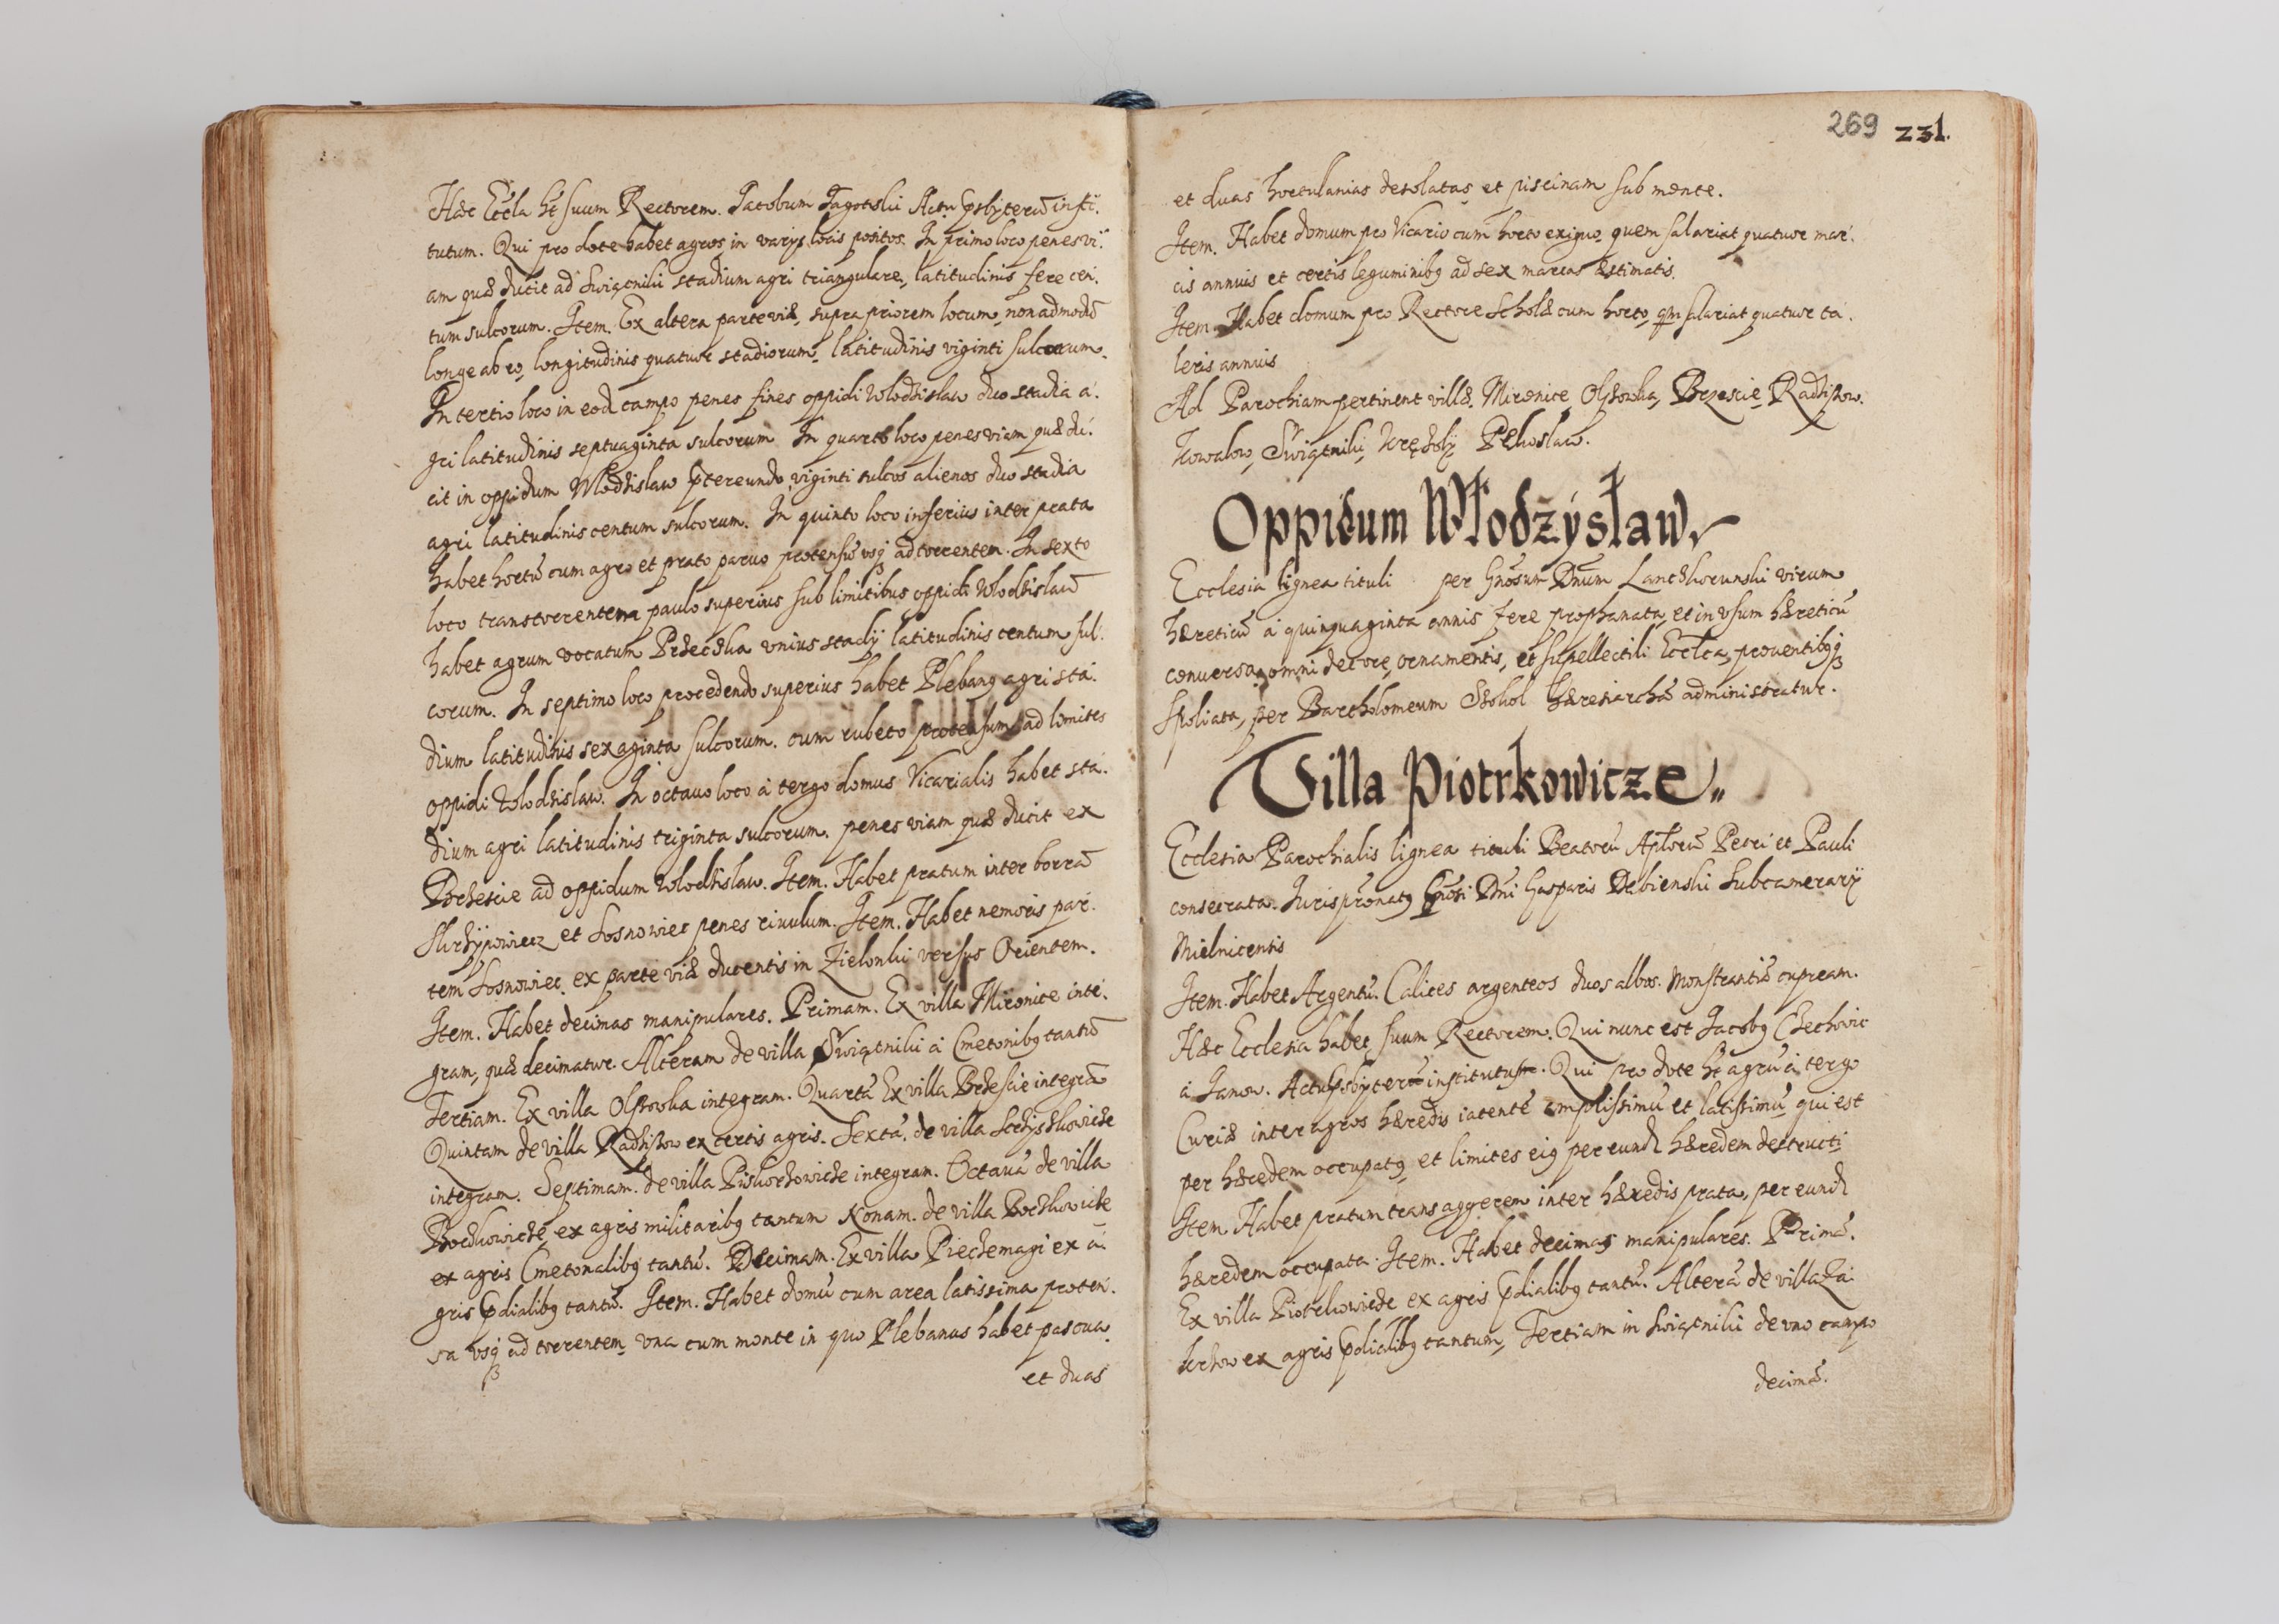 Hæc Eccla ht suum Rectorem. Jacobum Jagotskii Actu psbyterũ insti-
tutum. Qui pro dote habet agros in varijs locis positos. In primo loco penes vi-
am quæ ducit ad Swiątniki stadium agri triangulare, latitudinis fere cen-
tum sulcorum. Item. Ex altera parte viæ, supra priorem locum, non admodũ
longe ab eo, longitudinis quatuor stadiorum, latitudinis viginti sulcorum.
In tertio loco in eod campo penes fines oppidi Wlodzislaw duo stadia a-
gri latitudinis septuaginta sulcorum In quarto loco penes viam quæ du-
cit in oppidum Wlodzislaw ptereundo viginti sulcos alienos duo stadia
agri latitudinis centum sulcorum. In quinto loco inferius inter prata
habet hortũ cum agro et prato paruo protensũ vsq ad torrentem. In sexto
loco trans torrentem paulo superius sub limitibus oppidi Wlodzislaw
habet agrum vocatum Przeczka vnius stadij latitudinis centum sul-
corum. In septimo loco procedendo superius habet Plebang agri sta-
dium latitudinis sexaginta sulcorum. cum rubeto protensum ad limites
oppidi Wlodzislaw. In octauo loco à tergo domus Vicarialis habet sta-
dium agri latitudinis triginta sulcorum. penes viam quæ ducit ex
Brzescie ad oppidum Wlodzislaw. Item. Habet pratum inter borrã
Skrzypowiecz et Sosnowiec penes riuulum. Item. Habet nemoris par-
tem Sosnowiec. ex parte viæ ducentis in Zielonki versus Orientem.
Item. Habet decimas manipulares. Primam. Ex villa Mironice inte-
gram, quæ decimatur. Alteram de villa Swiątniki à Cmetonibg tantũ
Tertiam. Ex villa Olszowka integram. Quartã Ex villa Brzescie integrã
Quintam de villa Radziszow ex certis agris. Sextã. de villa
integram. Septimam. de villa Piskorzowicze integram. Octauã de villa
Boczkowicze, ex agris militaribg tantum Nonam. de villa Boczkowicze
ex agris Cmetonalibg tantũ. Decimam. Ex villa Piechemagi ex a-
gris pdialibg tantũ. Item. Habet domũ cum area latissima proten-
sa vsq ad torrentem, vna cum monte in quo Plebanus habet pascua.
et duas
269 231.
et duas hortulanias desolatas et piscinam sub monte.
Item. Habet domum pro Vicario cum horto exiguo, quem salariat quatuor mar-
cis annuis et certis leguminibg ad sex marcas æstimatis.
Item Habet domum pro Rectore Scholæ cum horto, qm salariat quatuor ta-
leris annuis
Ad Parochiam pertinent villæ. Mironice, Olszowka, Brzescie, Radziszow.
Kowalow, Swiątniki, Krężoly Pełkoslaw.
Oppidum Włodzysław
Ecclesia lignea tituli per Gnosum Dnum Lanczkorunski virum
hæreticũ à quinquaginta annis fere prophanata, et in vsum hæreticũ
conuersa, omni decore, ornamentis, et supellectili Eccľca, prouentibgq
spoliata, per Bartholomeum Sokol hæresiarchã administratur.
Villa Piotrkowicze
Ecclesia Parochialis lignea tituli Beatorũ Aplorũ Petri et Pauli
consecrata. Iurispronatg Gnosi Dni Gasparis Debienski Subcamerarij
Mielnicensis
Item. Habet Argentũ. Calices argenteos duos albos. Monstrantiã cupream.
Hæc Ecclesia habet suum Rectorem. Qui nunc est Jacobg Chechowic
à Janow. Actu psbyter institutus. Qui pro dote ht agrũ à tergo
Curiæ inter agros hæredis iacentẽ amplissimũ et latissimũ qui est
per hæredem occupatg, et limites eig per eund hæredem destructi
Item Habet pratum trans aggerem inter hæredis prata, per eund
hæredem occupata. Item. Habet decimas manipulares. Primã.
Ex villa Piotrkowicze ex agris pdialibg tantũ. Alterã de villa Za-
krzow ex agris pdialibg tantum, Tertiam in Swiątniki de vno campo
decimã.